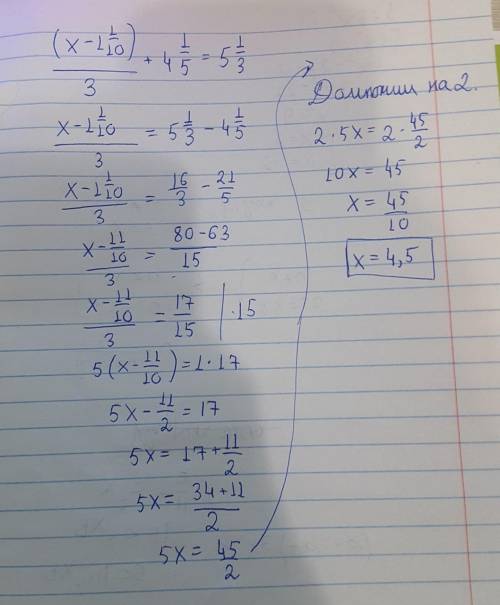 (x - 1 1/10)/3 + 4 1/5 = 5 1/3
(x - 1 1/10)/3 = 5 1/3 - 4 1/5
(x - 1 1/10)/3 = 16/3 - 21/5
(x - 11/10)/3 = (80 - 63)/15
(x - 11/10)/3 = 17/15 | · 15
5(x - 11/10) = 1 · 17
5x - 11/2 = 17
5x = 17 + 11/2
5x = (34 + 11)/2
5x = 45/2
Домножим на 2.
2 · 5x = 2 · 45/2
10x = 45
x = 45/10
x = 4,5